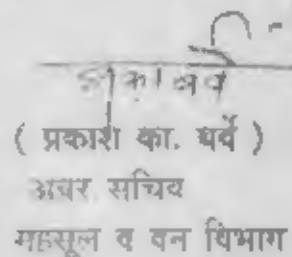 ( प्रकाश का. घर्वे )
अवर सचिव
महसूल व वन विभाग